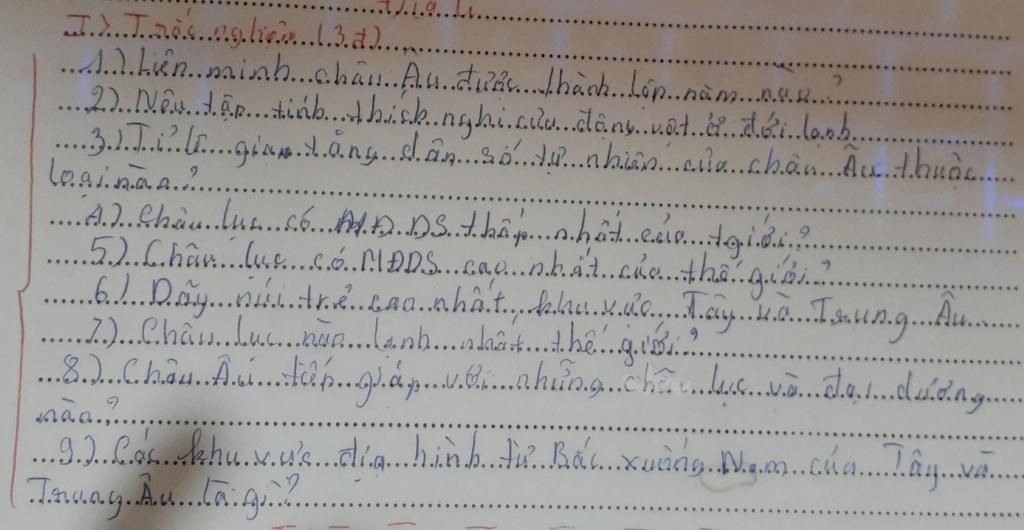 Địa lí
I.) Trắc nghiệm (3đ)
1.) Liên minh châu Âu được thành lập năm nào?
2). Nêu tập tính thích nghi của động vật ở đới lạnh
3.) Tỉ lệ gia tăng dân số tự nhiên của châu Âu thuộc
loại nào?
4.) Châu lục có MĐDS thấp nhất của tgiới?
5.) Châu lục có MĐDS cao nhất của thế giới?
6.) Dãy núi trẻ cao nhất khu vực Tây và Trung Âu
7.) Châu lục nào lạnh nhất thế giới?
8.) Châu Âu tiếp giáp với những châu lục và đại dương
nào?
9.) Các khu vực địa hình từ Bắc xuống Nam của Tây và
Trung Âu là gì?